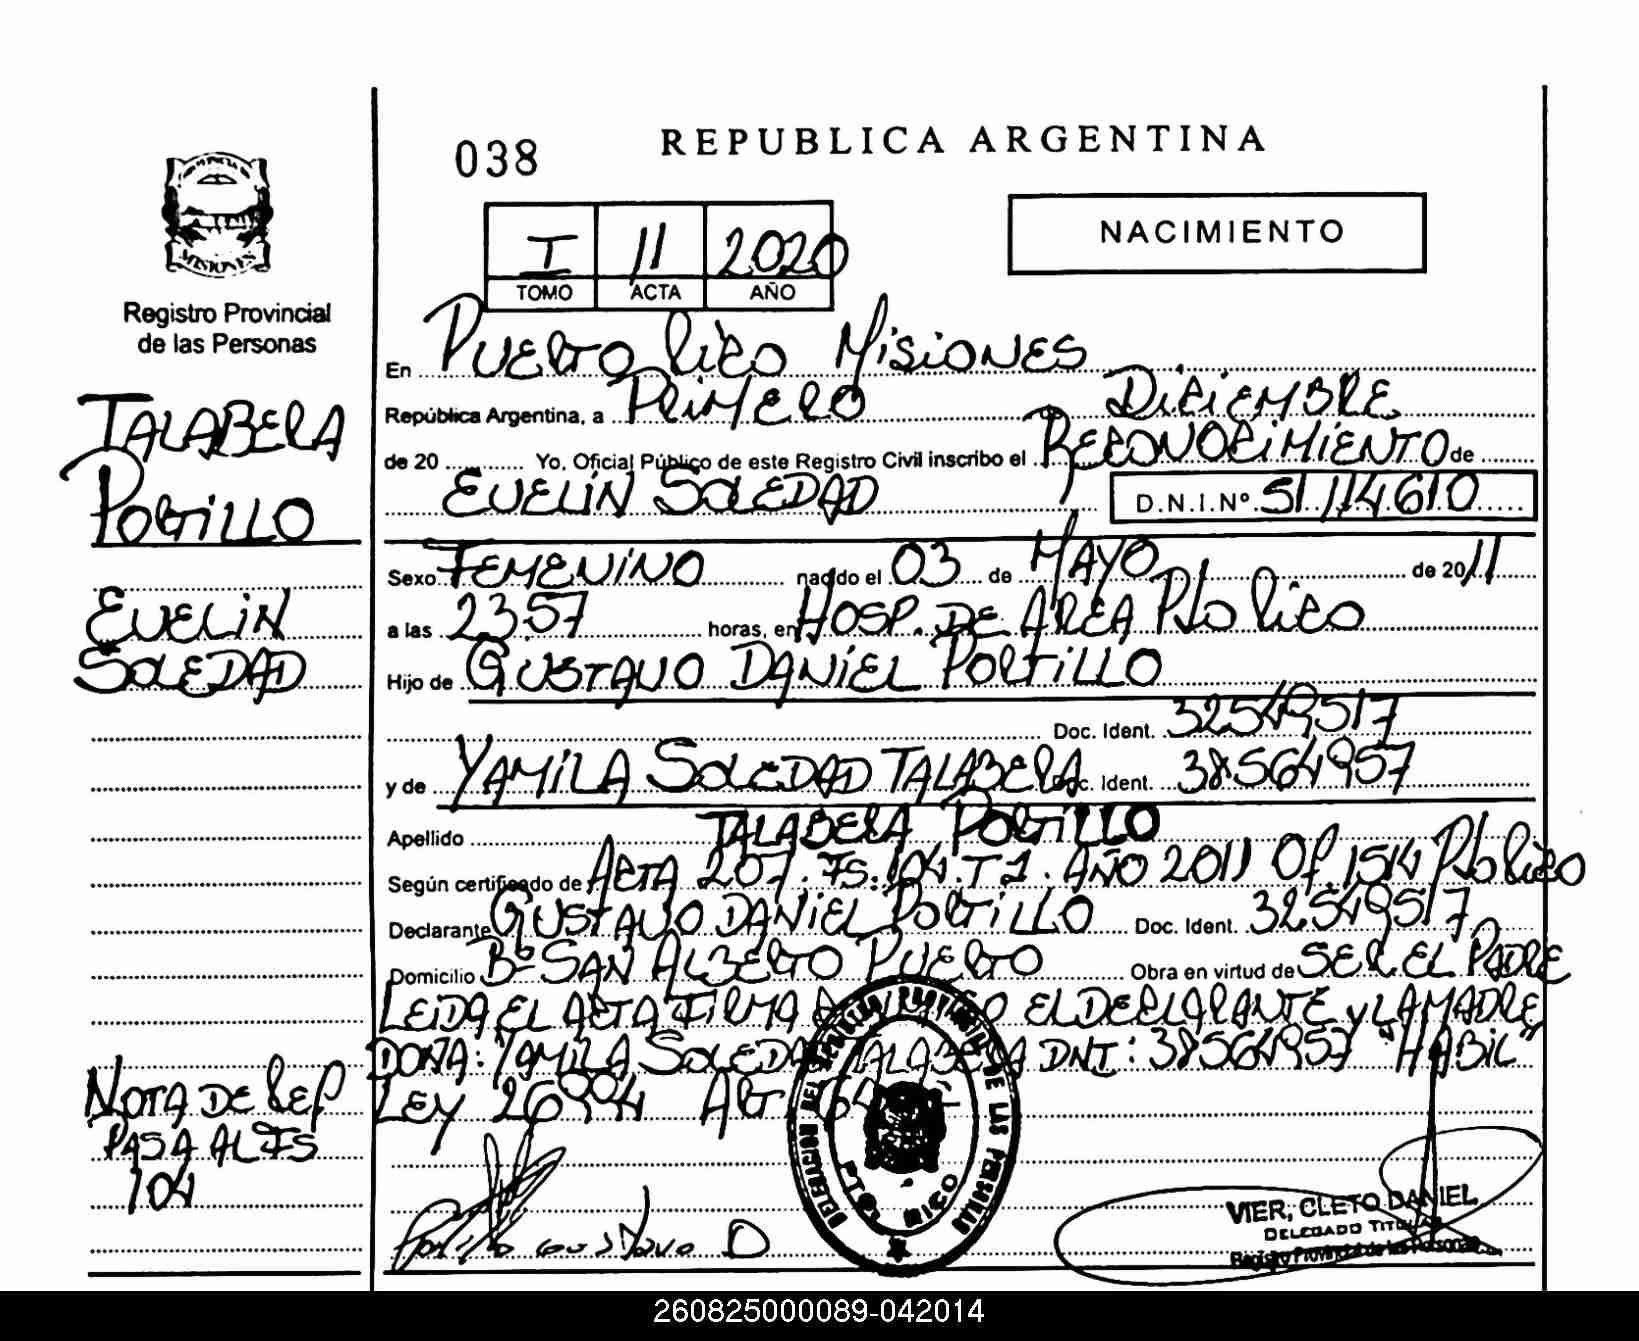 038
REPUBLICA ARGENTINA
NACIMIENTO
I 11 2020
TOMO ACTA AÑO
MISIONES
Registro Provincial
de las Personas
TALABERA
PORTILLO
EVELIN
SOLEDAD
NOTA DE REF
PASA AL FS
104
En PUERTO RICO MISIONES
República Argentina, a PRIMERO DICIEMBRE
de 20 Yo, Oficial Público de este Registro Civil inscribo el RECONOCIMIENTO de
EVELIN SOLEDAD D.N.I.Nº 51.114.610
Sexo FEMENINO nacido el 03 de MAYO de 2011
a las 23.57 horas, en HOSP. DE AREA Pto RICO
Hijo de GUSTAVO DANIEL PORTILLO
Doc. Ident. 32549517
y de YAMILA SOLEDAD TALABERA Doc. Ident. 38564957
Apellido TALABERA PORTILLO
Según certificado de ACTA 207. FS. 104. T 1. AÑO 2011 Of 1514 Pto RICO
Declarante GUSTAVO DANIEL PORTILLO Doc. Ident. 32549517
Domicilio Bº SAN ALBERTO PUERTO Obra en virtud de SER EL PADRE
LEIDA EL ACTA FIRMA EL DECLARANTE y LA MADRE
DOÑA: YAMILA SOLEDAD TALABERA DNI: 38564957 "HABIL"
LEY 26994 ART 64
DELEGACION DEL REGISTRO PROVINCIAL DE LAS PERSONAS
PTO. RICO
Portillo Gustavo D
VIER, CLETO DANIEL
DELEGADO TITULAR
Registro Provincial de las Personas
260825000089-042014